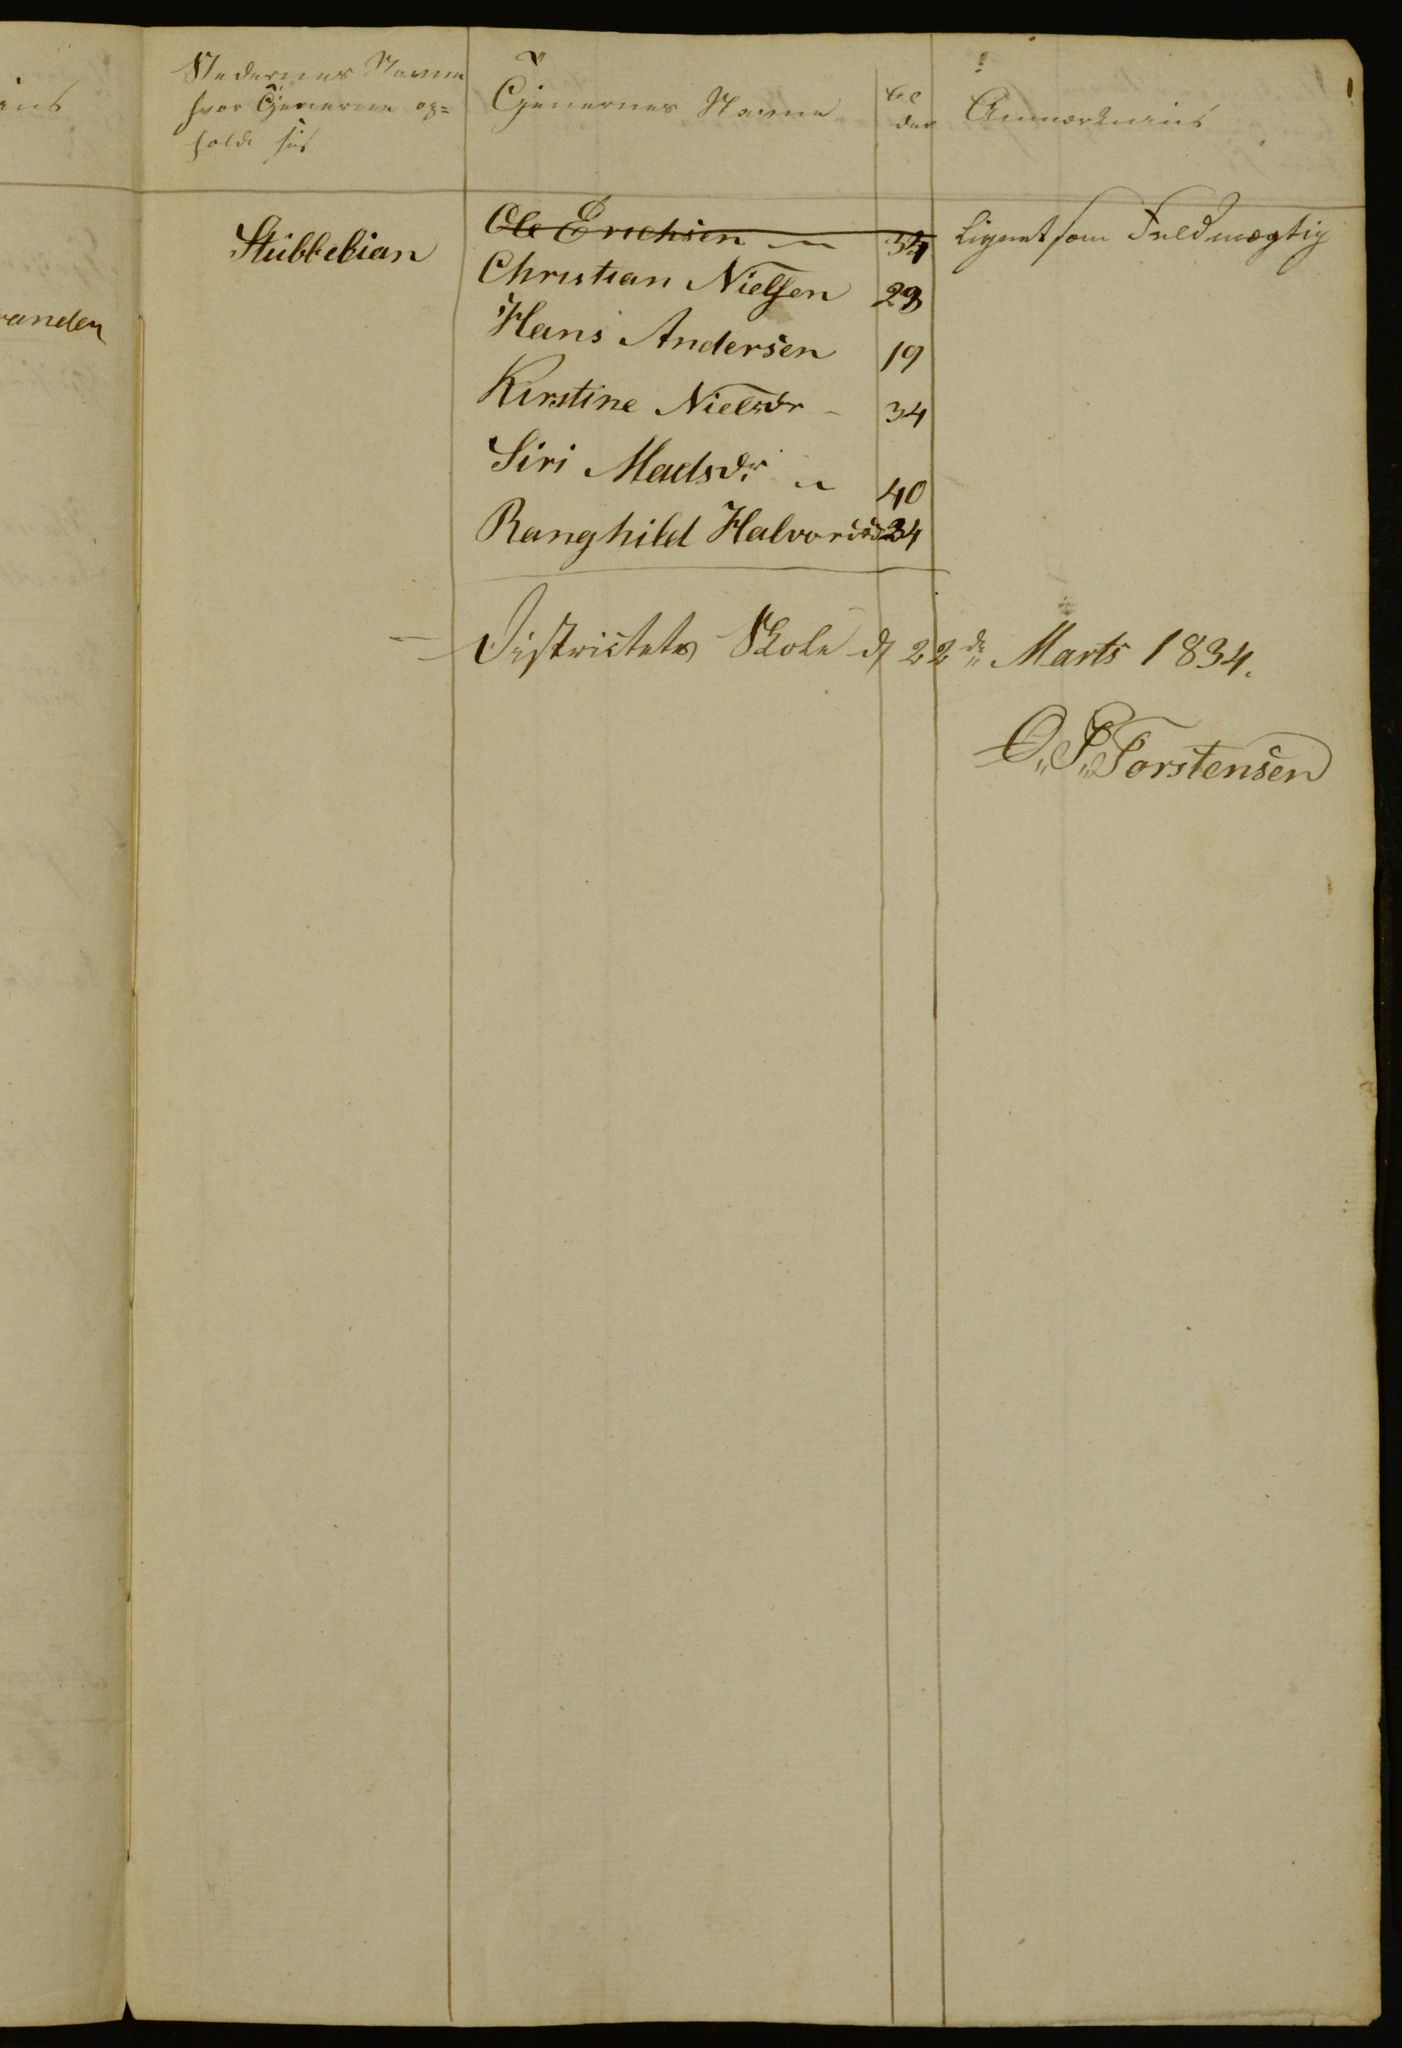 Stedernes Navne
hvor Tjenerne op=
holde sig
Tjenernes Navne
Al
der
Anmærkning
Stubbekian
Ole Erichsen 34 Lignet som Fuldmægtig
Christian Nielsen 29
Hans Andersen 19
Kirstine Nielsdr 34
Siri Madsdr 40
Ranghild Halvorsd 34
Districtets Skole d 22de Marts 1834.
O. P. Torstensen
randen